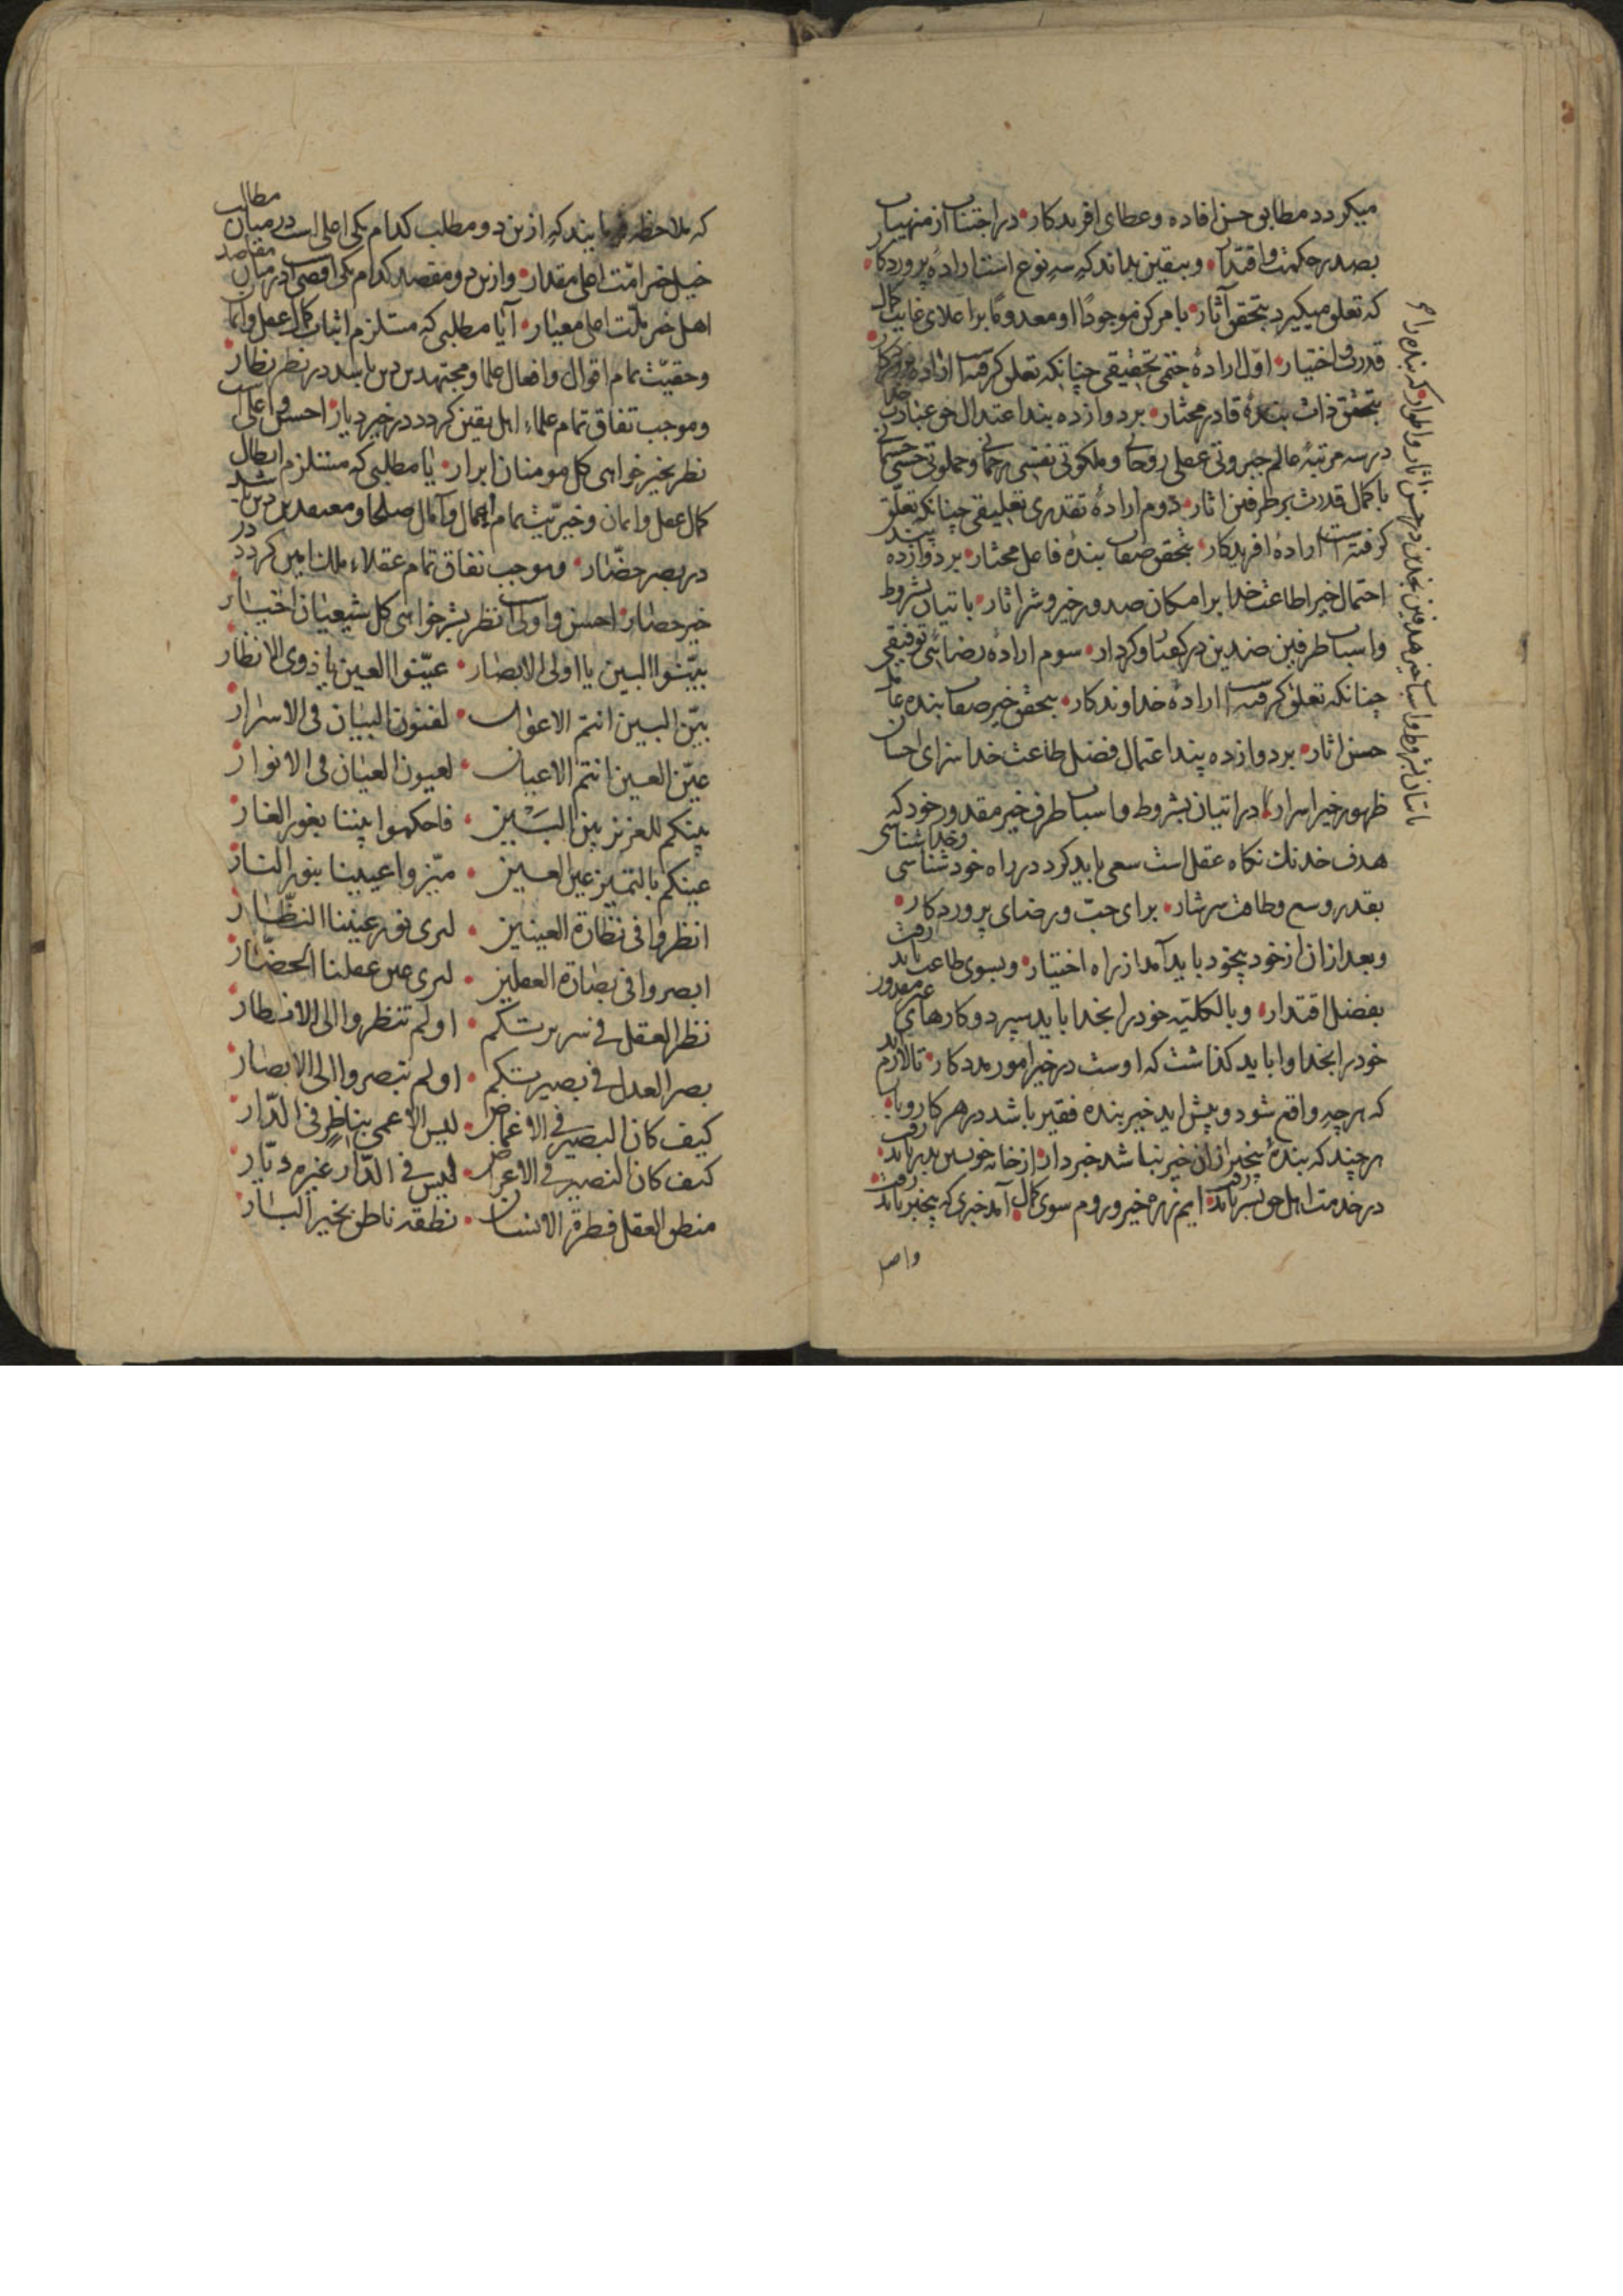 میکردد مطابق حسن افاده و عطای افریدکار در اجتناب از منهیات
بصدر حکمت و اقتدار و بیقین بداند که سه نوع است اراده پروردکار
که تعلق میکیرد بتحقق آثار با مرکن موجودًا او معدومًا برا علای غایت کمال
قدرت و اختیار اوّل ارادهٔ حتمی تحقیقی چنانکه تعلق کرفته است ارادهٔ
بتحقق ذات بندهٔ قادر مختار بر دوازده بند اعتدال حق عبادت خدا
در سه مرتبهٔ عالم جبروتی عقلی روحانی و ملکوتی نفسی و حملوتی حسی جسمانی
با کمال قدرت بر طرفین اثار دوم ارادهٔ تقدیری تعلیقی چنانکه تعلّق
کرفته است ارادهٔ افریدکار بتحقق صفات بندهٔ فاعل مختار بر دوازده بند
احتمال خیر اطاعت خدا بر امکان صدور خیر و شر اثار با تیان بشروط
و اسباب طرفین ضدین در کفتار و کردار سوم ارادهٔ رضائی توفیقی
چنانکه تعلق کرفته است ارادهٔ خداوندکار بتحقق خیر صفات بنده عامل
حسن اثار بر دوازده بند اعتمال فضل طاعت خدا سزای احسان
ظهور خیر اسرار در اتیان بشروط و اسباب طرف خیر مقدور خود که
هدف خدنك نکاه عقل است سعی باید کرد در راه خودشناسی و خداشناسی
بقدر وسع و طاقت سرشار برای حبّ و رضای پروردکار
و بعد ازان از خود بیخود باید آمد از راه اختیار و بسوی طاعت باید رفت
بفضل اقتدار و بالکلیّه خود را بخدا باید سپرد و کارهای غیر مقدور
خود را بخدا وا باید کذاشت که اوست در خیر امور مددکار تا لازم آید
که هر چه واقع شود و پیش اید خیر بنده فقیر باشد در هر کار و بار
هر چند که بندهٔ بیخبر ازان خیر نباشد خبردار از خانه خویش بدر باید رفت
در خدمت اهل حق بسر باید رفت ایم زره خیر و روم سوی کمال آمد خبری که بیخبر باید رفت
واصل
که ملاحظه فرمایند که ازین دو مطلب کدام یکی اعلی است در میان مطالب
خیل خیر امّت اعلی مقدار و ازین دو مقصد کدام یکی اقصی است در میان مقاصد
اهل خیر ملّت اعلی معیار آیا مطلبی که مستلزم اثبات کمال عقل و ایمان
و حقیّت تمام اقوال و افعال علما و مجتهدین دین باشد در نظر نظار
و موجب تفاق تمام علماء اهل یقین کردد در خیر دیار احسن و اعلی است
نظر بخیر خواهی کل مومنان ابرار یا مطلبی که مستلزم ابطال
کمال عقل و ایمان و خیریّت تمام اعمال و آمال صلحا و معتقدین دین باشد
در بصر حضّار و موجب نفاق تمام عقلاء ملك امین کردد در
خیر حصار احسن و اولی است نظر بشر خواهی کل شیعیان اختیار
بیّنوا البین یا اولی الابصار عیّنوا العین یا ذوی الانظار
بیّن البین انتم الاعوان لفنون البیان فی الاسرار
عیّن العین انتم الاعیان لعیون العیان فی الانوار
بینکم للعزیز بین البَسَیْن فاحکموا بیننا بغور الغار
عینکم بالتمییز عین العین میّزوا عیننا بنور النار
انظروا فی نظارة العینین لنری نور عیننا النظّار
ابصروا فی بصارة العقلین لنری عین عقلنا الحضّار
نظر العقل فی سریرتکم اولم تنظروا الی الافطار
بصر العدل فی بصیرتکم اولم تبصروا الی الابصار
کیف کان البصیر فی الاغماض لیس الاعمی بناظر فی الدّار
کیف کان النصیر فی الاعراض لیس فی الدّار غیره دیّار
منطق العقل فطرة الانسان نطقه ناطق بخیر البار